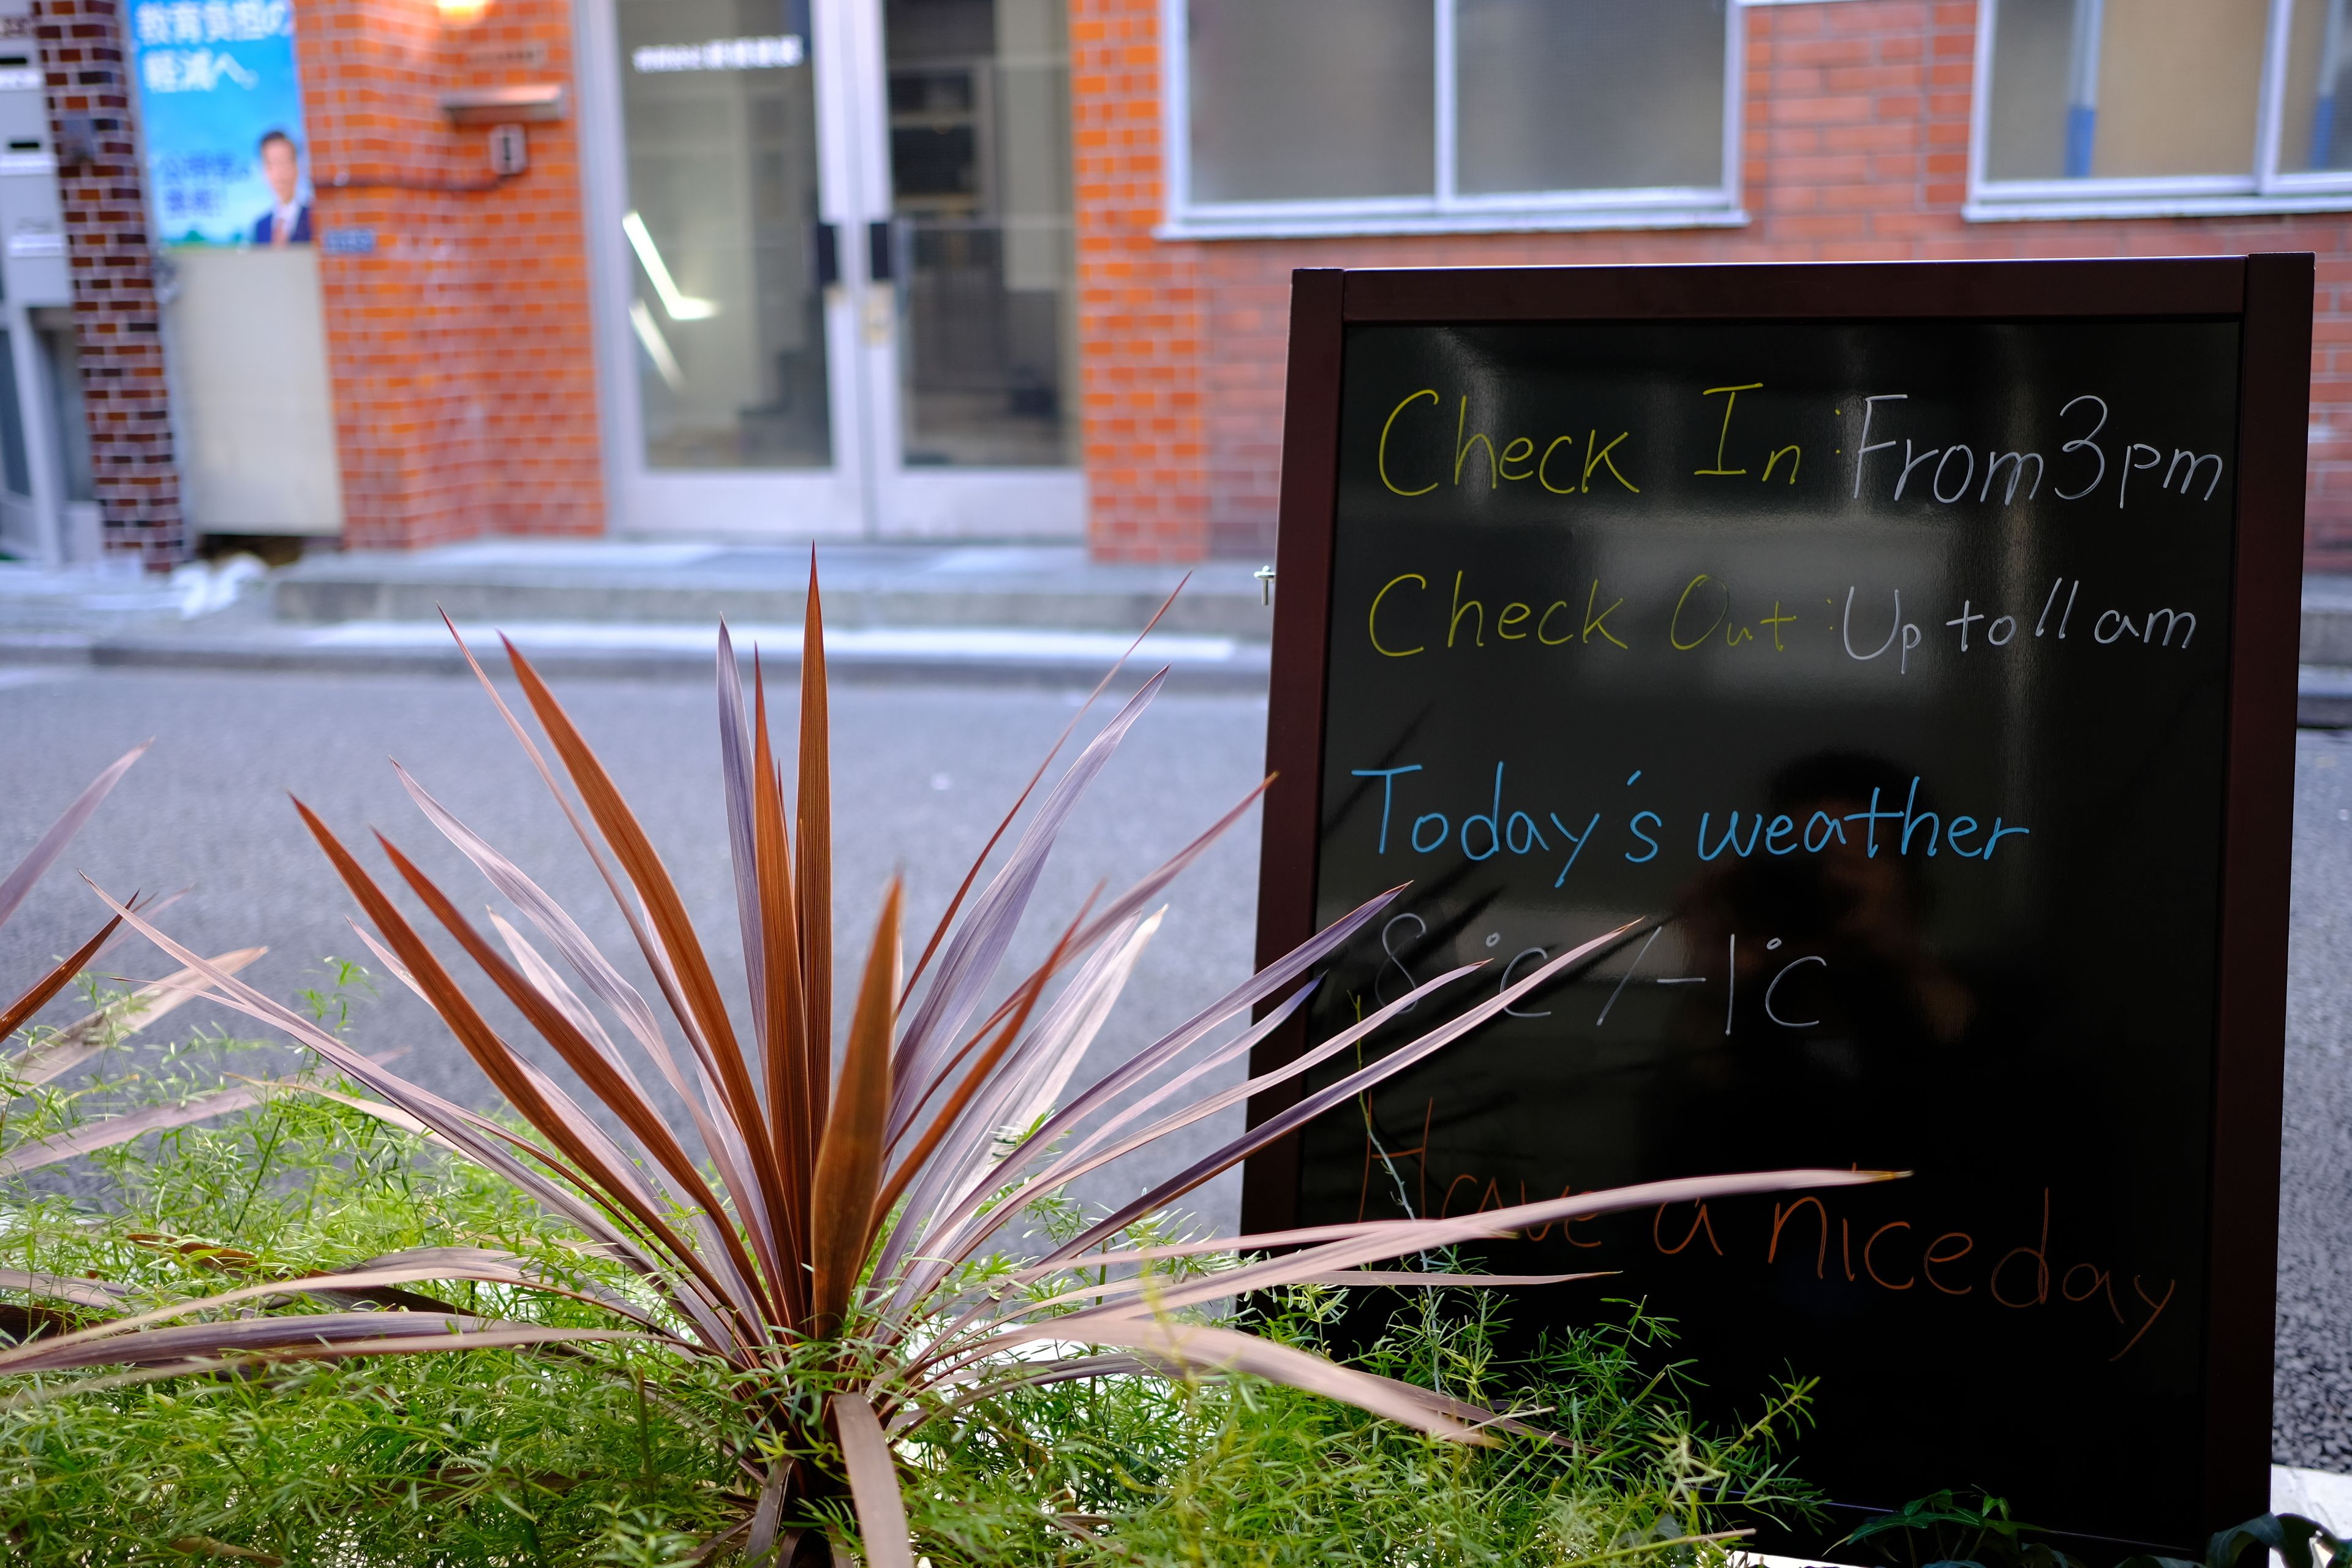 教育負担の
軽減へ。
Check In : From 3pm
Check Out : Up to 11 am
Today's weather
8 °C / -1°C
Have a nice day